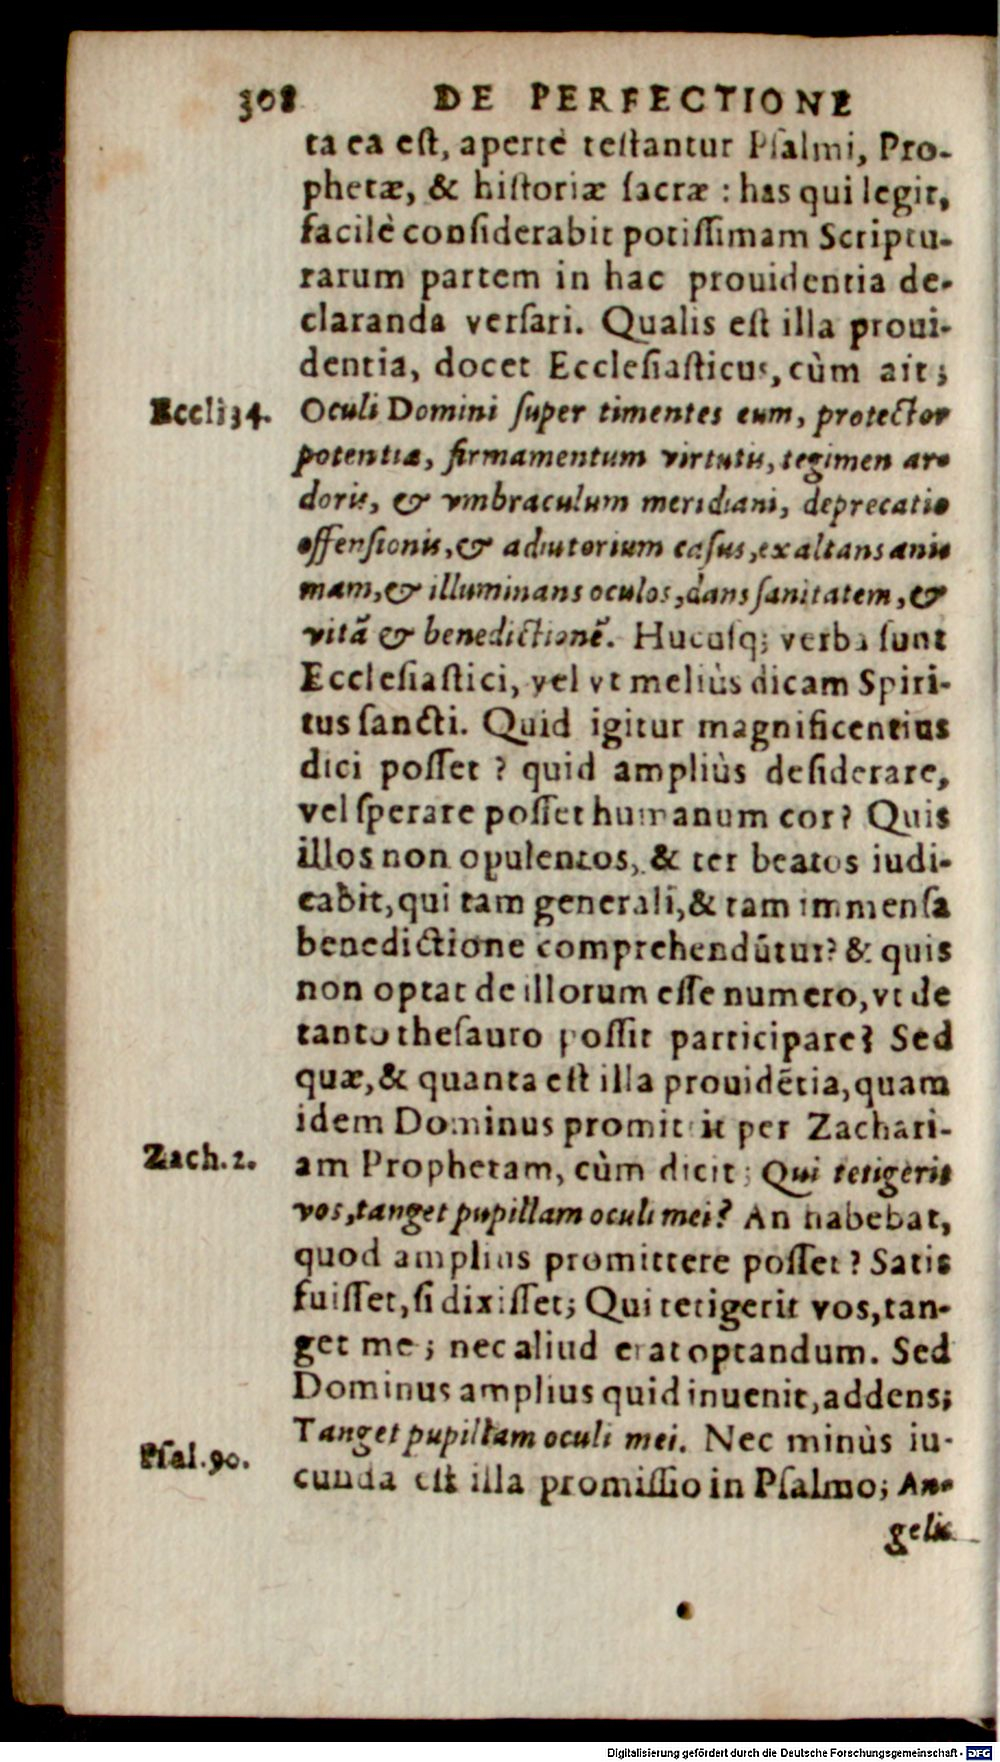 308 DE PERFECTIONE
ta ea eſt, apertè teſtantur Pſalmi, Pro-
phetæ, & hiſtoriæ ſacræ : has qui legit,
facilè conſiderabit potiſſimam Scriptu-
rarum partem in hac prouidentia de-
claranda verſari. Qualis eſt illa proui-
dentia, docet Eccleſiaſticus, cùm ait;
Eccli 34. Oculi Domini ſuper timentes eum, protector
potentiæ, firmamentum virtutis, tegimen ar-
doris, & vmbraculum meridiani, deprecatio
offenſionis, & adiutorium caſus, exaltans ani-
mam, & illuminans oculos, dans ſanitatem, &
vitā & benedictionē. Hucuſq; verba ſunt
Eccleſiaſtici, vel vt meliùs dicam Spiri-
tus ſancti. Quid igitur magnificentius
dici poſſet ? quid ampliùs deſiderare,
vel ſperare poſſet humanum cor? Quis
illos non opulentos, & ter beatos iudi-
cabit, qui tam generali, & tam immenſa
benedictione comprehendūtur? & quis
non optat de illorum eſſe numero, vt de
tanto theſauro poſſit participare? Sed
quæ, & quanta eſt illa prouidētia, quam
idem Dominus promittit per Zachari-
Zach. 2. am Prophetam, cùm dicit; Qui tetigerit
vos, tanget pupillam oculi mei? An habebat,
quod amplius promittere poſſet ? Satis
fuiſſet, ſi dixiſſet; Qui tetigerit vos, tan-
get me; nec aliud erat optandum. Sed
Dominus amplius quid inuenit, addens;
Tanget pupillam oculi mei. Nec minùs iu-
Pſal. 90. cunda eſt illa promiſſio in Pſalmo; An-
gelis
Digitalisierung gefördert durch die Deutsche Forschungsgemeinschaft - DFG